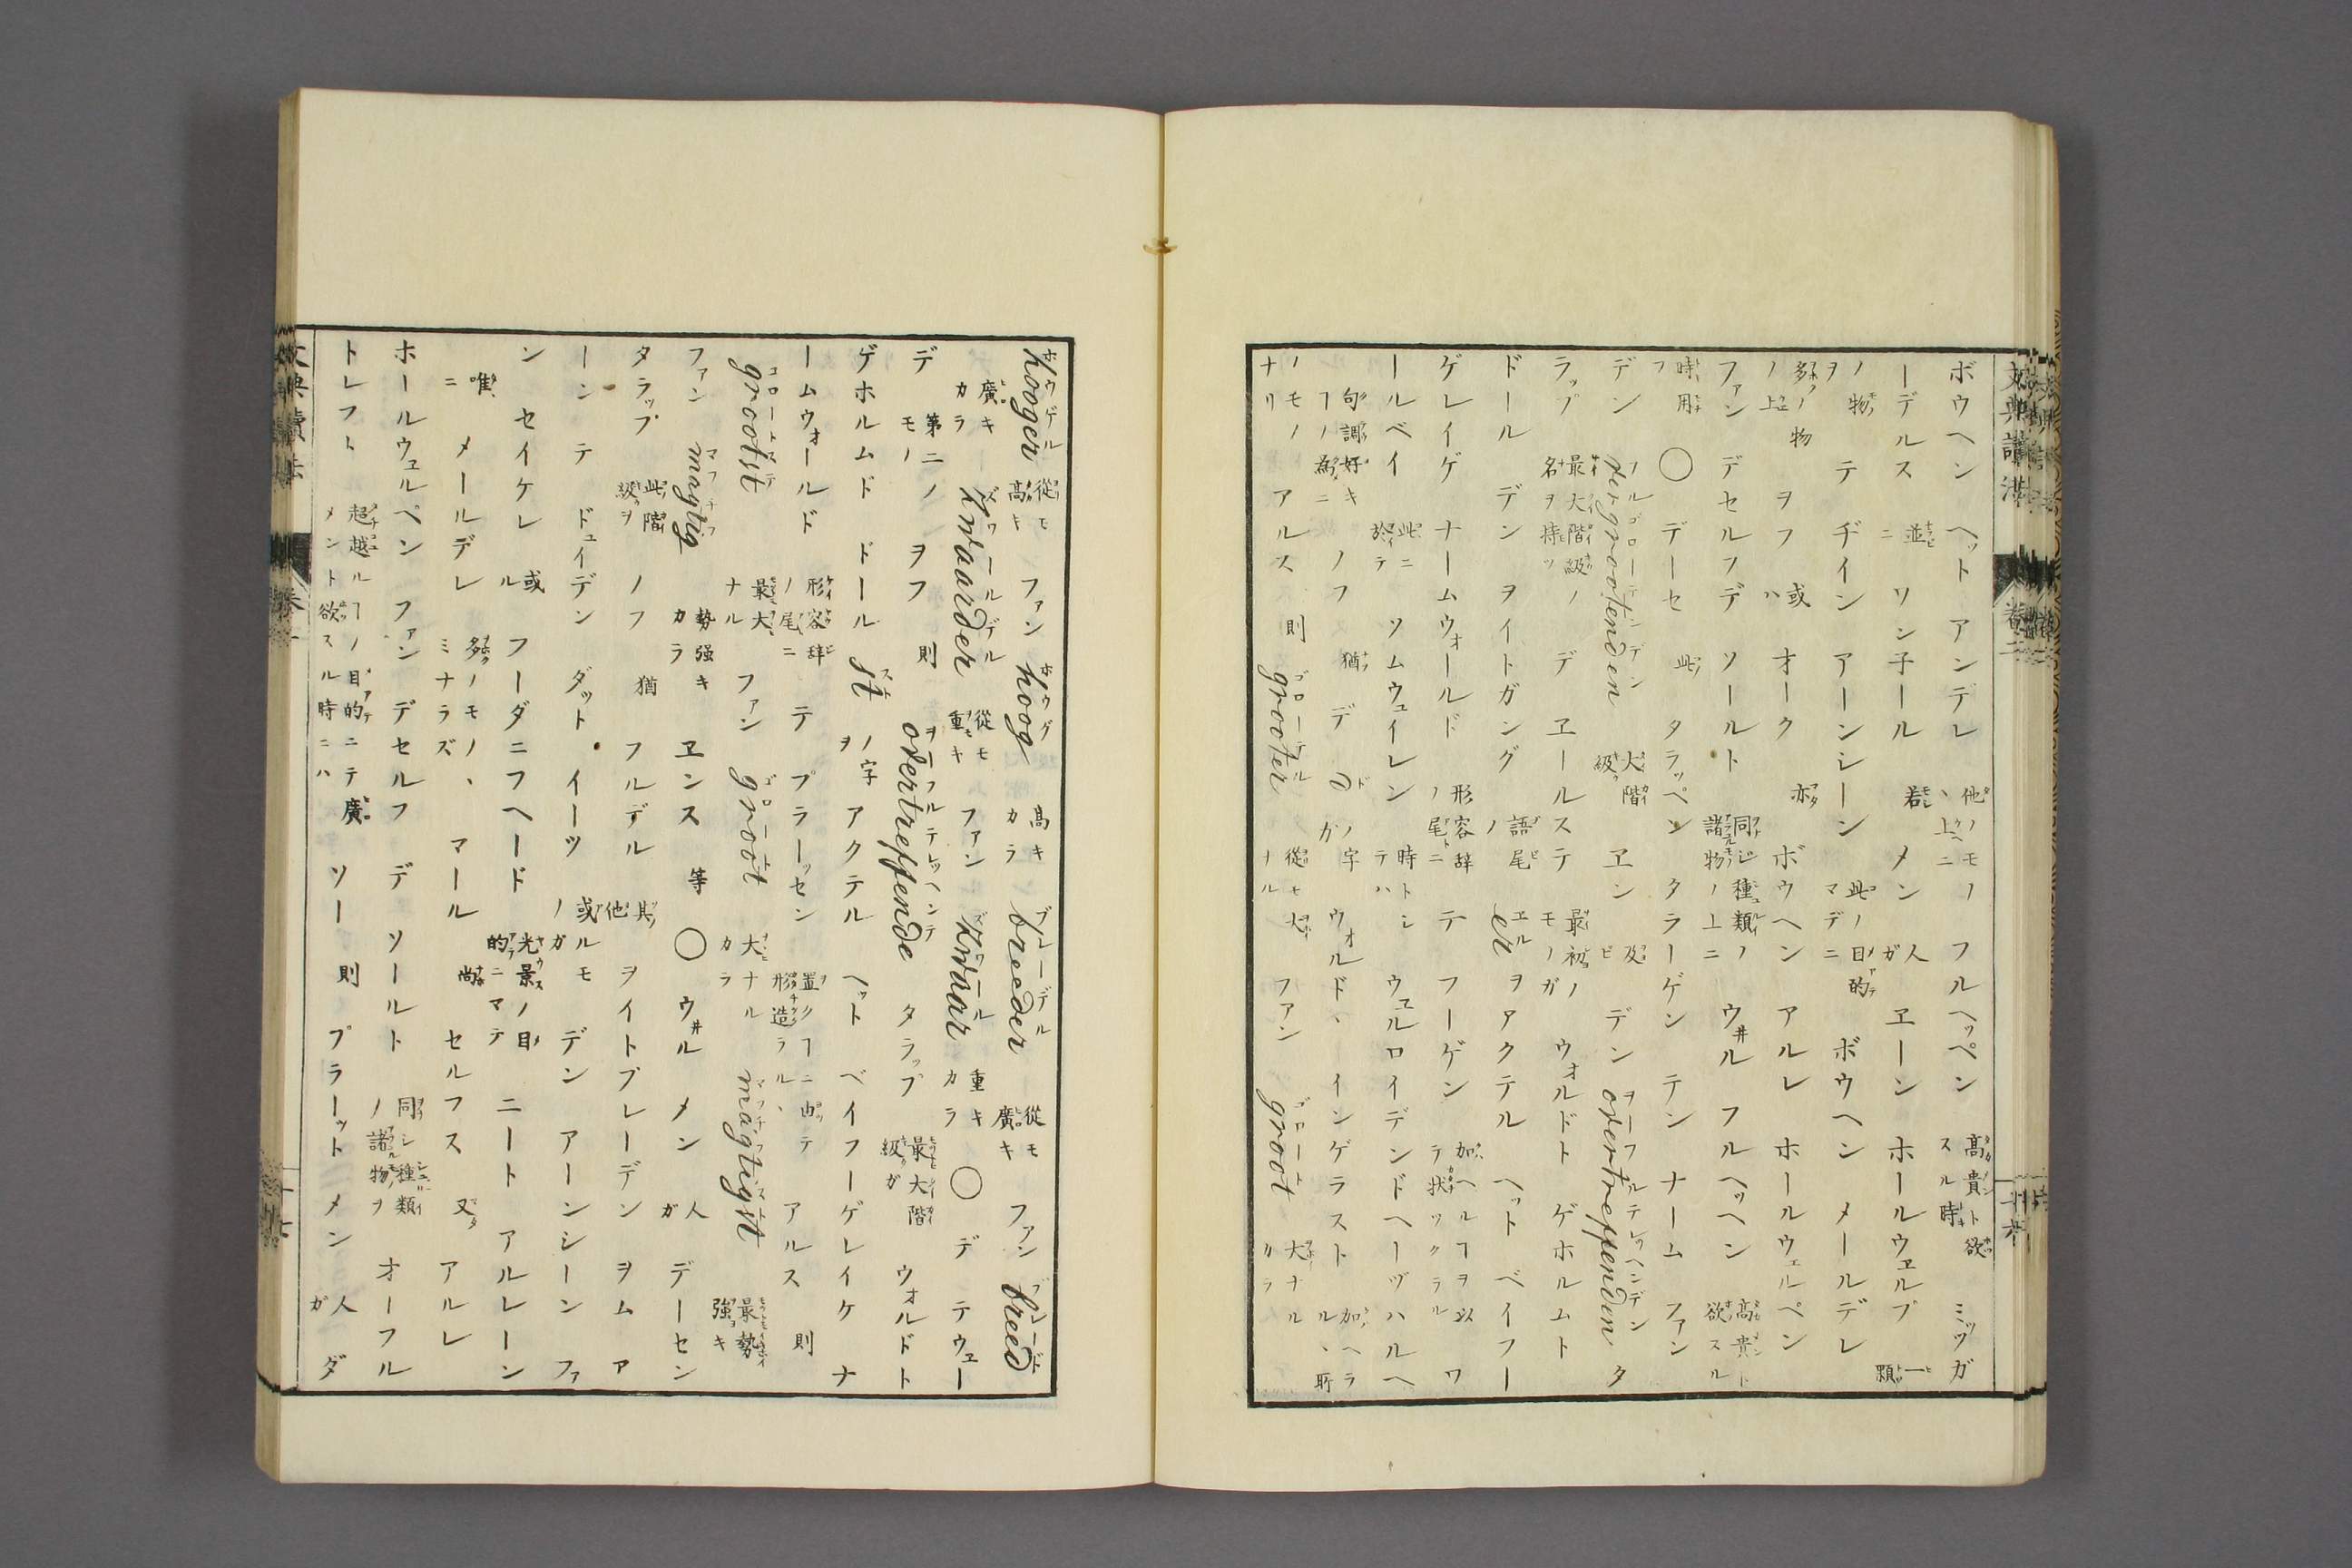 ボウヘン ヘット アンデレ 他ノモノヽ上ニ フルヘッペン 高貴ト欲スル時 ミッガ
ーデルス 並ニ ソン子ール 若 メン 人ガ ヱーン ホールウェルプ 一顆
ノ物ヲ テ ヂイン アーンシーン 此ノ目的マデニ ボウヘン メールデレ
多ノ物ノ上 ヲフ 或ハ オーク 亦 ボウヘン アルレ ホールウェルペン
ファン デセルフデ ソールト 同ジ種類ノ諸物ノ上ニ ウヰル フルヘッヘン 高貴ト欲スル
時用フ ◯ デーセ 此 タラッペン タラーゲン テン ナーム ファン
デン vergrootenden 大階級 ヱン 及ビ デン overtreffenden タ
ラップ 最大階級ノ名ヲ持ツ デ ヱールステ 最初ノモノガ ウォルドト ゲホルムト
ドール デン ヲイトガング 語尾ノ er ヲアクテル ヘット ベイフー
ゲレイゲ ナームウォールド 形容辞ノ尾ニ テ フーゲン 加ヘルヿヲ以テ状ックラル ワ
ールベイ 此ニ於テ ソムウェイレン 時トシテハ ウェルロイデンドヘーヅハルヘ
句調好キヿノ為ニ ノフ 猶 デ d ノ字ガ ウォルド、インゲラスト 加ヘラルヽ所
ノモノナリ アルス 則 grooter 從モ大ナル ファン groot 大ナルカラ
hooger 從モ高キ ファン hoog 高キカラ breeder 從モ廣キ ファン breed
廣キカラ zwaarder 從モ重キ ファン zwaar 重キカラ ◯ デ テウェー
デ 第二ノモノ ヲフ 則 overtreffende タラップ 最大階級ガ ウォルドト
ゲホルムド ドール st ノ字ヲ アクテル ヘット ベイフーゲレイケ ナ
ームウォールド 形容辞ノ尾ニ テ プラーッセン 置クヿニ由テ形造ラルヽ アルス 則
grootst 最大ナル ファン groot 大ナルカラ magtigst 最勢強キ
ファン magtig 勢强キカラ ヱンス 等 ◯ ウヰル メン 人ガ デーセン
タラップ 此階級ヲ ノフ 猶 フルデル 其他 ヲイトブレーデン ヲム ア
ーン テ ドュイデン ダット イーツ 或ルモノガ デン アーンシーン ファ
ン セイケレ 或ル フーダニフヘード 光景ノ目的ニマテ ニート アルレーン
唯ニ メールデレ 多ノモノヽミナラズ マール 尚 セルフス 又 アルレ
ホールウェルペン ファン デセルフデ ソールト 同シ種類ノ諸物ヲ オーフル
トレフト 超越ルヿノ目的ニテ廣メント欲スル時ニハ ソー 則 プラーット メン 人ガ ダ